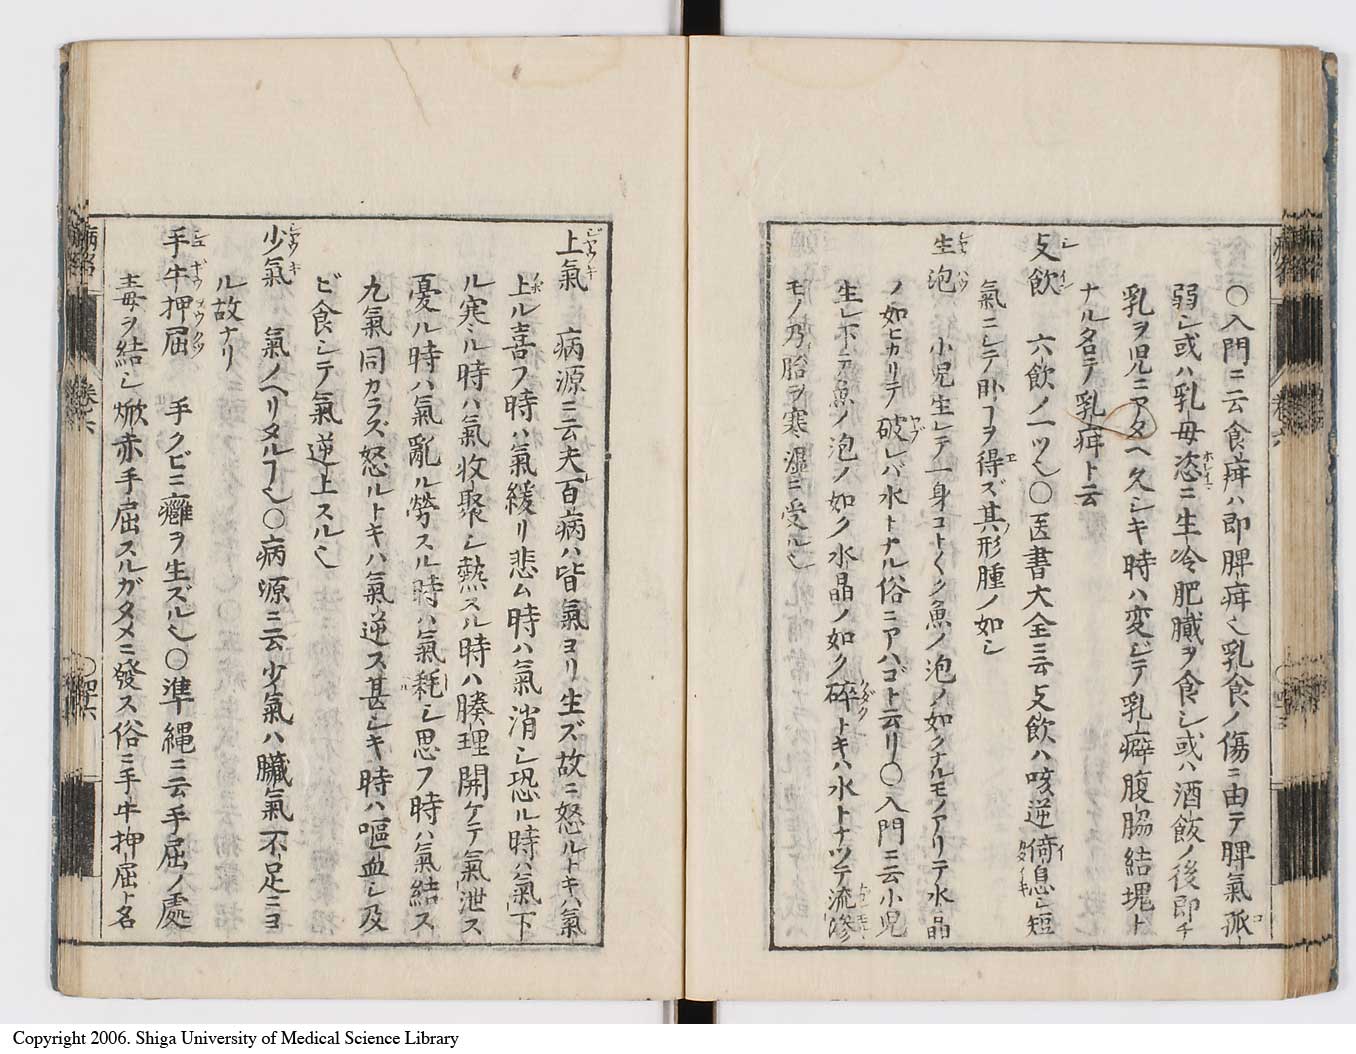 〇入門ニ云食疳ハ即脾疳也乳食ノ傷ニ由テ脾氣孤
弱シ或ハ乳母恣ニ生冷肥膩ヲ食シ或ハ酒飯ノ後即チ
乳ヲ児ニアタヘ久シキ時ハ変シテ乳癖腹脇結塊ト
ナル名テ乳疳ト云
支飲 六飲ノ一ツ也〇医書大全ニ云支飲ハ咳逆倚息シ短
氣ニシテ卧ヿヲ得ズ其形腫ノ如シ
生泡 小児生レテ一身コト〱ク魚ノ泡ノ如クナルモノアリテ水晶
ノ如ヒカリテ破レバ水トナル俗ニアハゴト云リ〇入門ニ云小児
生レ下テ魚ノ泡ノ如ク水晶ノ如ク碎トキハ水トナツテ流滲
モノ乃胎ヲ寒濕ニ受ル也
上氣 病源ニ云夫百病ハ皆氣ヨリ生ズ故ニ怒ルトキハ氣
上ル喜フ時ハ氣緩リ悲ム時ハ氣消シ恐ル時ハ氣下
ル寒ル時ハ氣收聚シ熱スル時ハ腠理開ケテ氣泄ス
憂ル時ハ氣亂ル勞スル時ハ氣耗シ思フ時ハ氣結ス
九氣同カラズ怒ルトキハ氣逆ス甚シキ時ハ嘔血シ及
ビ食シテ氣逆上スル也
少氣 氣ノヘリタルヿ也〇病源ニ云少氣ハ臓氣不足ニヨ
ル故ナリ
手牛押屈 手クビニ癰ヲ生ズル也〇準縄ニ云手屈ノ處
毒ヲ結シ焮赤手屈スルガタメニ發ス俗ニ手牛押屈ト名
病名
卷六
Copyright 2006. Shiga University of Medical Science Library